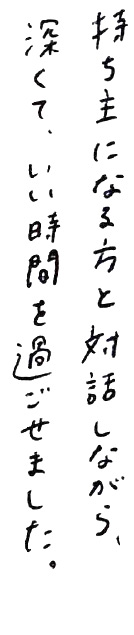 持ち主になる方と対話しながら、
深くて、いい時間を過ごせました。